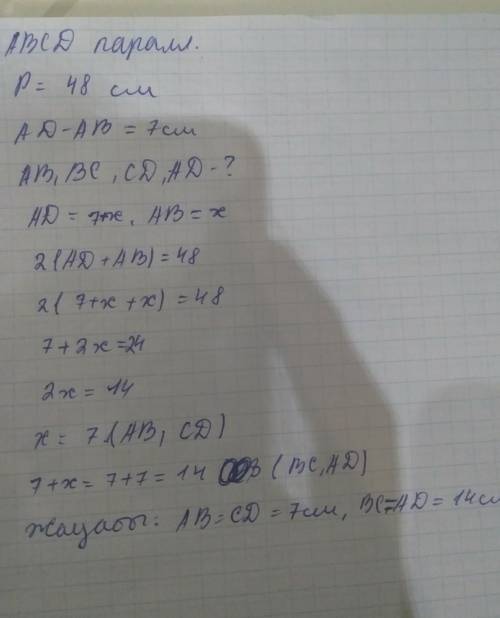 ABCD паралл.
P = 48 см
AD-AB = 7см
AB, BC, CD, AD-?
AD = 7+x, AB = x
2(AD+AB)=48
2(7+x+x)=48
7+2x=24
2x = 14
x = 7 (AB, CD)
7+x = 7+7 = 14 (BC, AD)
Жауабы: AB=CD=7см, BC=AD=14см